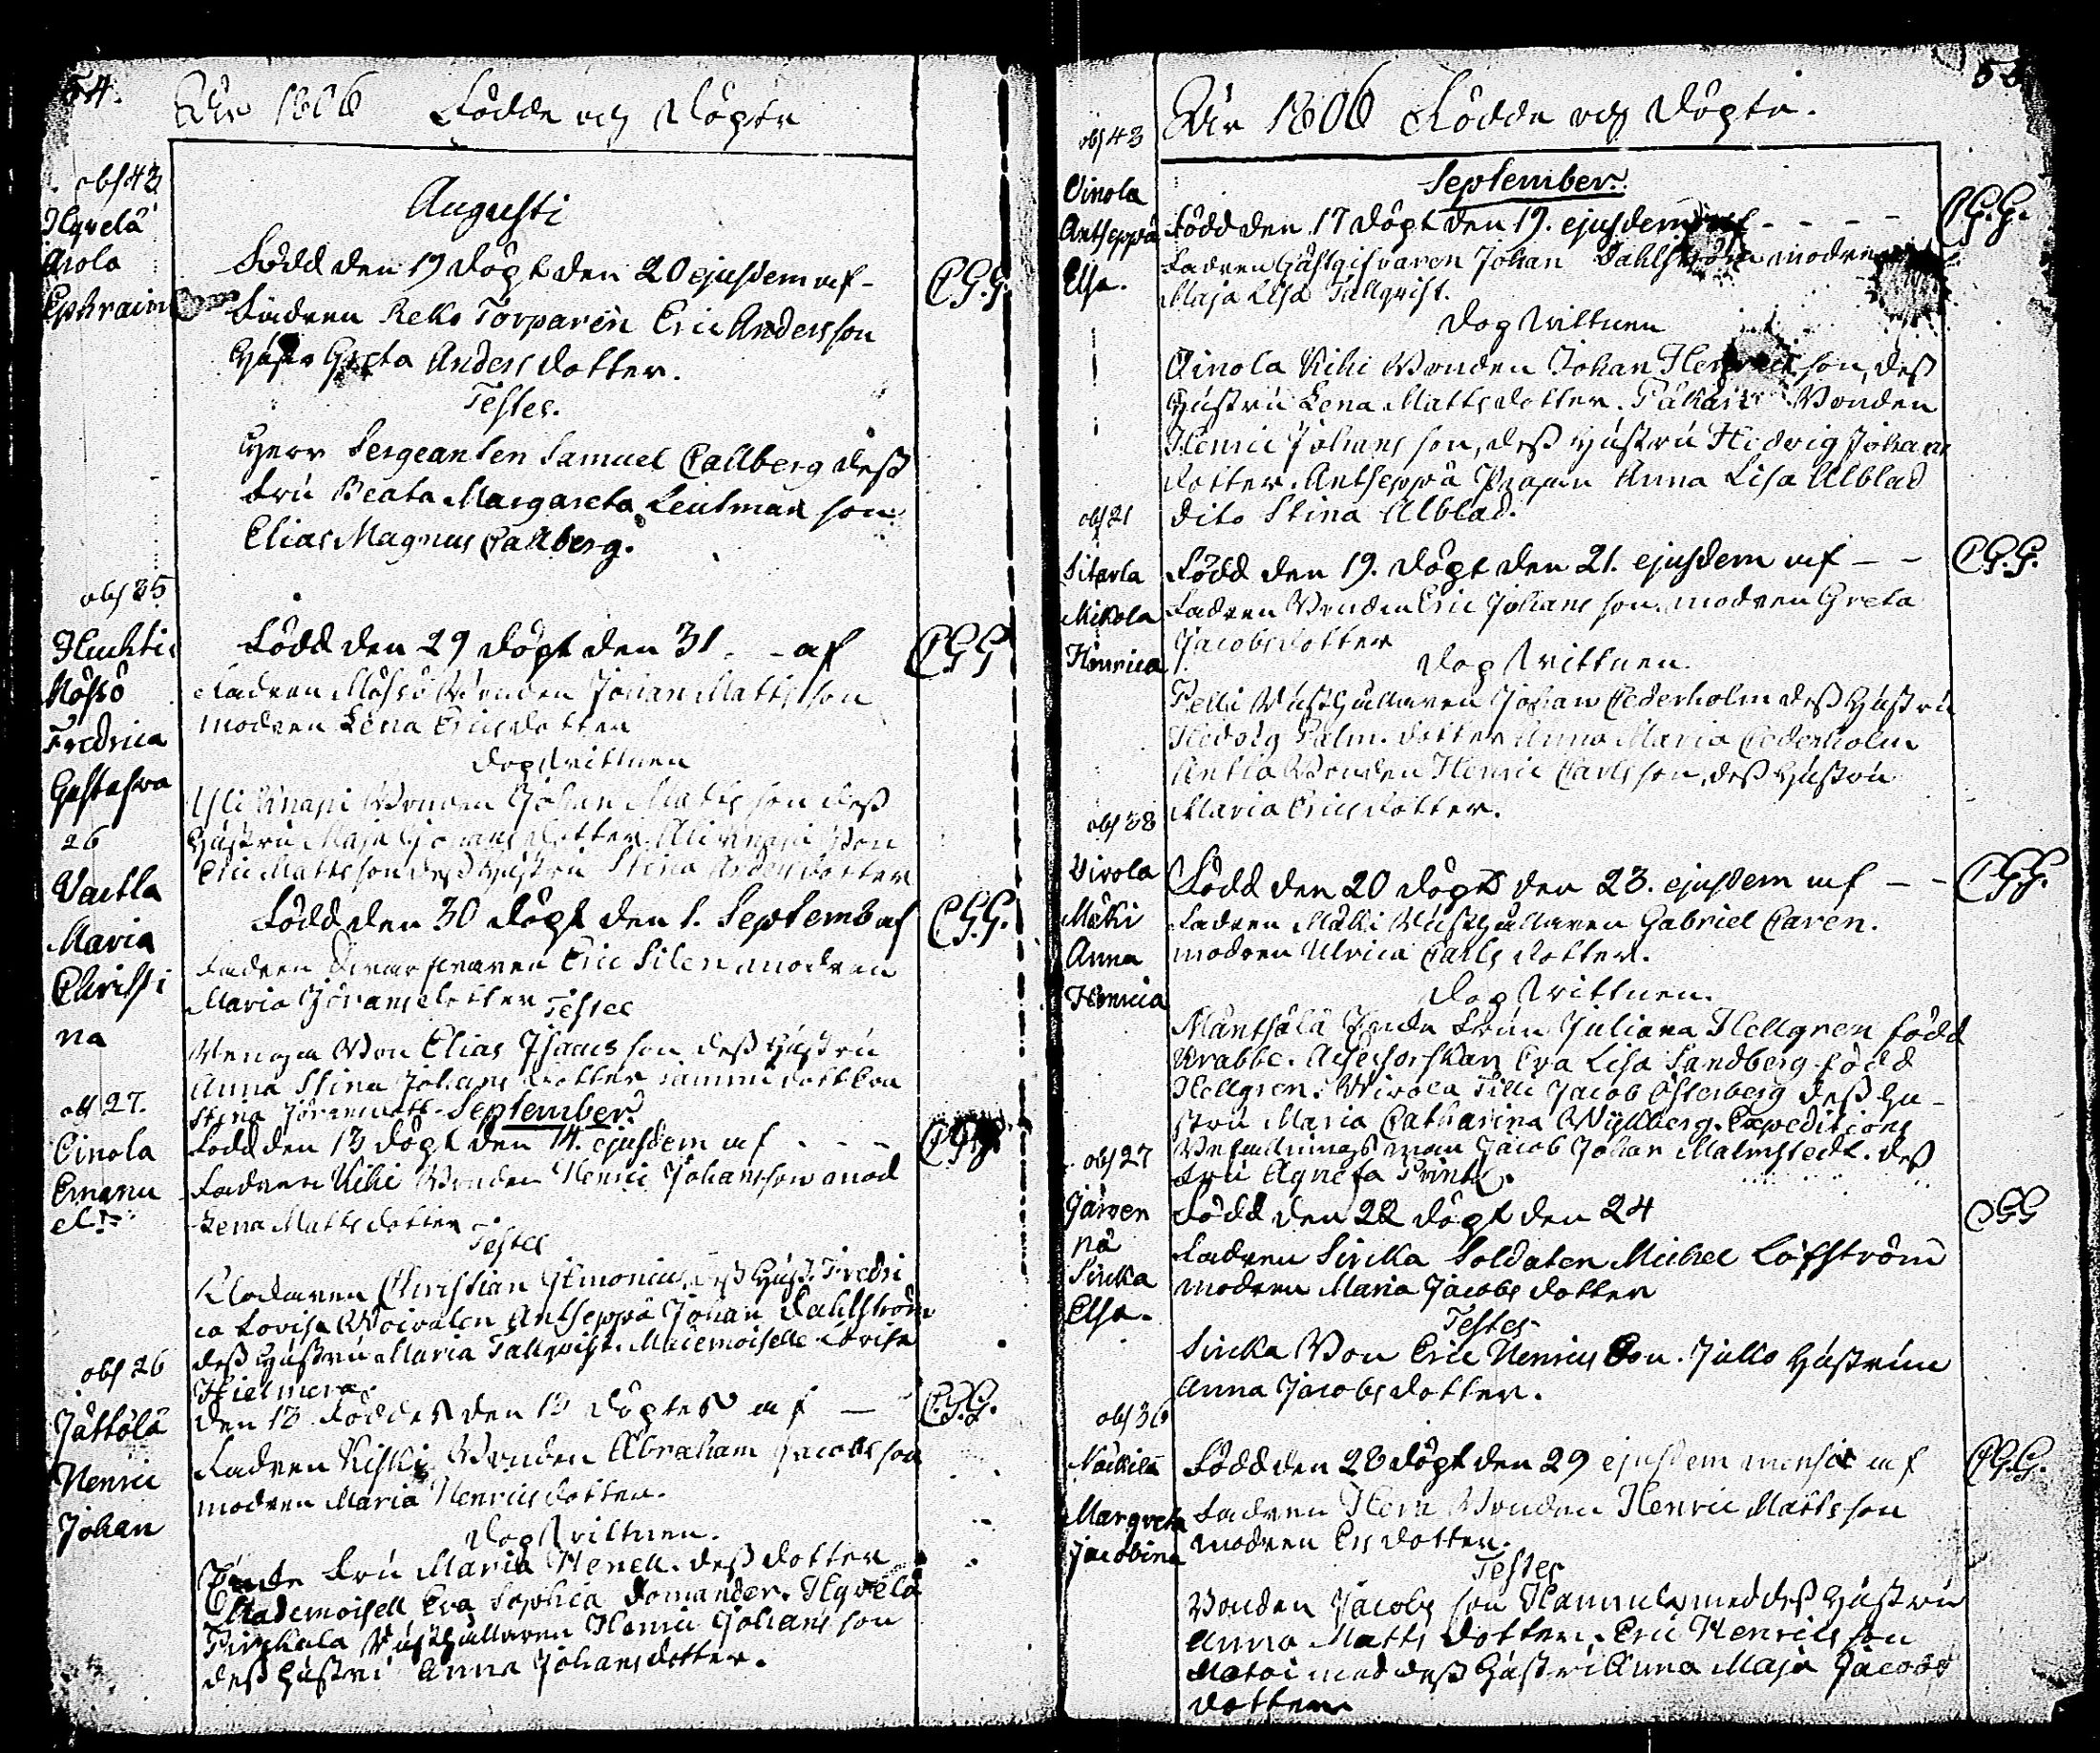 54.
År 1806 Födde och Döpte
Augusti
obs 43
Hyvelä
Arola
Ephraim
Född den 19 döpt den 20 ejusdem af - C.G.G.
Fadren Reko Torparen Eric Andersson
Hust. Greta Anders dotter.
Testes.
Herr Sergeanten Samuel Callberg dess
Fru Beata Margareta Leutman son
Elias Magnus Callberg.
obs 35
Huchti
Mössö
Fredrica
Gustafva
Född den 29 döpt den 31 - - af CGG
Fadren Mössö Bonden Johan Mattsson
modren Lena Ericsdotter
Dopsvittnen
Bonden Johan Matts son dess
Hustru Maja Görans dotter Bon
Eric Mattsson dess Hustru Stina dotter
26
Vartla
Maria
Christi
na
Född den 30 döpt den 1. Septemb af C.G.G.
Fadren Eric Silen modren
Maria Görans dotter Testes
Bon Elias Isacs son dess Hustru
Anna Stina Johans dotter
Stina
September
obs 27.
Oinola
Emanu
el.
Född den 13 döpt den 14. ejusdem af - - - CGG
Fadren Kiki Bonden Henric Johansson mod
Lena Matts dotter Testes
Klockaren Christian dess Hust. Fredri
ca Lovisa Antseppä Johan Dahlström
dess Hustru Maria Tallqvist. Mademoiselle Lovisa
Hielmera
obs 26
Jättölä
Henric
Johan
den 13 Föddes den 13 döptes af — C.G.G.
Fadren Kiski Bonden Abraham Jacobsson
modren Maria Henricsdotter.
Dopsvittnen.
Fru Maria Henell. dess dotter
Mademoisell Eva Sophia Domander. Hyvelä
Pirhala Rusthållaren Henric Johansson
dess Hustru Anna Johansdotter.
År 1806 Födde och Döpte.
September.
obs 43
Oinola
Antseppä
Elsa.
Född den 17 döpt den 19. ejusdem af - - - - C.G.G.
Fadren Gästgifvaren Johan Dahlström modren
Maja Lisa Tallqvist.
Dopsvittnen
Oinola Kiki Bonden Johan Henricsson, dess
Hustru Lena Mattsdotter. Bonden
Henric Johansson, dess Hustru Hedvig Johans
dotter. Antseppä Pigan Anna Lisa Alblad
dito Stina Alblad.
obs 21
Sitarla
Mikola
Henrica
Född den 19. döpt den 21. ejusdem af - - C.G.G.
Fadren Bonden Eric Johansson. modren Greta
Jacobsdotter
Dopsvittnen.
Pelli Rusthållaren Johan Cederholm dess Hustru
Hedvig Palm. dotter Anna Maria Cederholm
Antla Bonden Henric Carlsson, dess Hustru
Maria Ericsdotter.
obs 38
Virola
Mäki
Anna
Henricia
Född den 20 döpt den 23. ejusdem af - - C.G.G.
Fadren Mäki Rusthållaren Gabriel Caren.
modren Ulrica Carlsdotter.
Dopsvittnen.
Mäntsälä Fruun Juliana Hellgren född
Krabbe. Assessorskan Eva Lisa Sandberg född
Hellgren. Wirola Tilli Jacob Österberg dess Hu-
stru Maria Catharina Wykberg. Expeditions
Befallningsman Jacob Johan Malmstedt. dess
Fru Agneta Printz.
obs 27
Järven
pä
Sirkka
Elsa.
Född den 22 döpt den 24 CGG
Fadren Sirkka Soldaten Michel Löfström
modren Maria Jacobs dotter
Testes
Sirkka Bon Eric Henrics son. Jukko Hustrun
Anna Jacobsdotter.
obs 36
Nackila
Margreta
Jacobina
Född den 28 döpt den 29 ejusdem mensis af C.G.G.
Fadren Hera Bonden Henric Mattsson
modren Ersdotter.
Testes
Bonden Jacobs son med dess Hustru
Anna Matts dotter. Eric Henricsson
med dess Hustru Anna Maja Jacobs
dotter